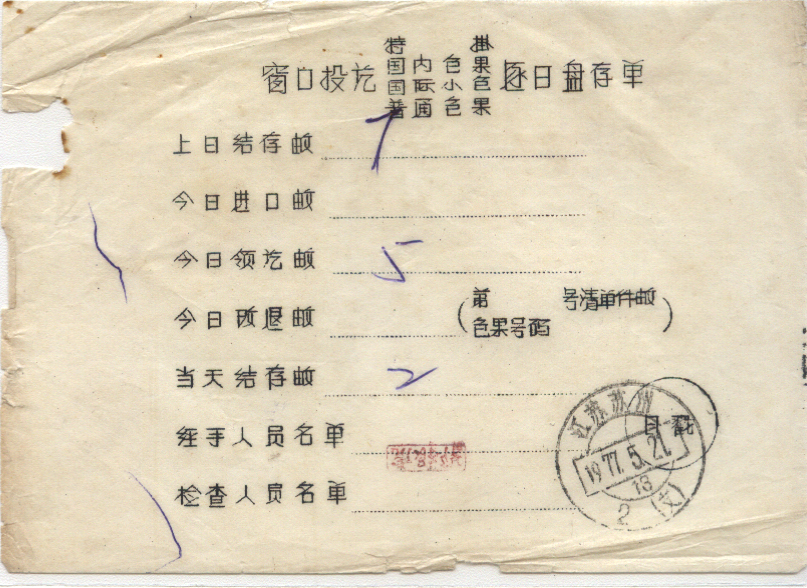 特 掛
国内色果
窗口投讫 逐日盘存单
国际小色
普通色果
上日结存邮 7
今日进口邮
今日领讫邮 5
今日改退邮 (第 号清单件邮
色果号码 )
当天结存邮 2
经手人员名单
检查人员名单
日戳
江苏苏州
1977.5.21.
13
2 (文)